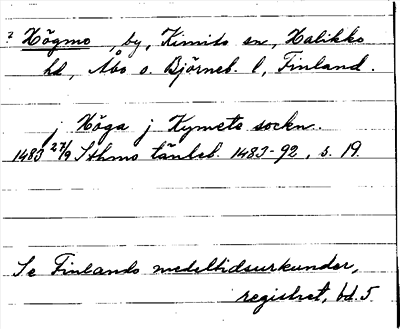 ? Högmo, by, Kimito sn, Halikko
hd, Åbo o. Björneb. l, Finland.
j Höga j Kymeto sockn.
1483 27/9 Sthms tänkeb. 1483-92, s. 19.
Se Finlands medeltidsurkunder,
registret, bd. 5.